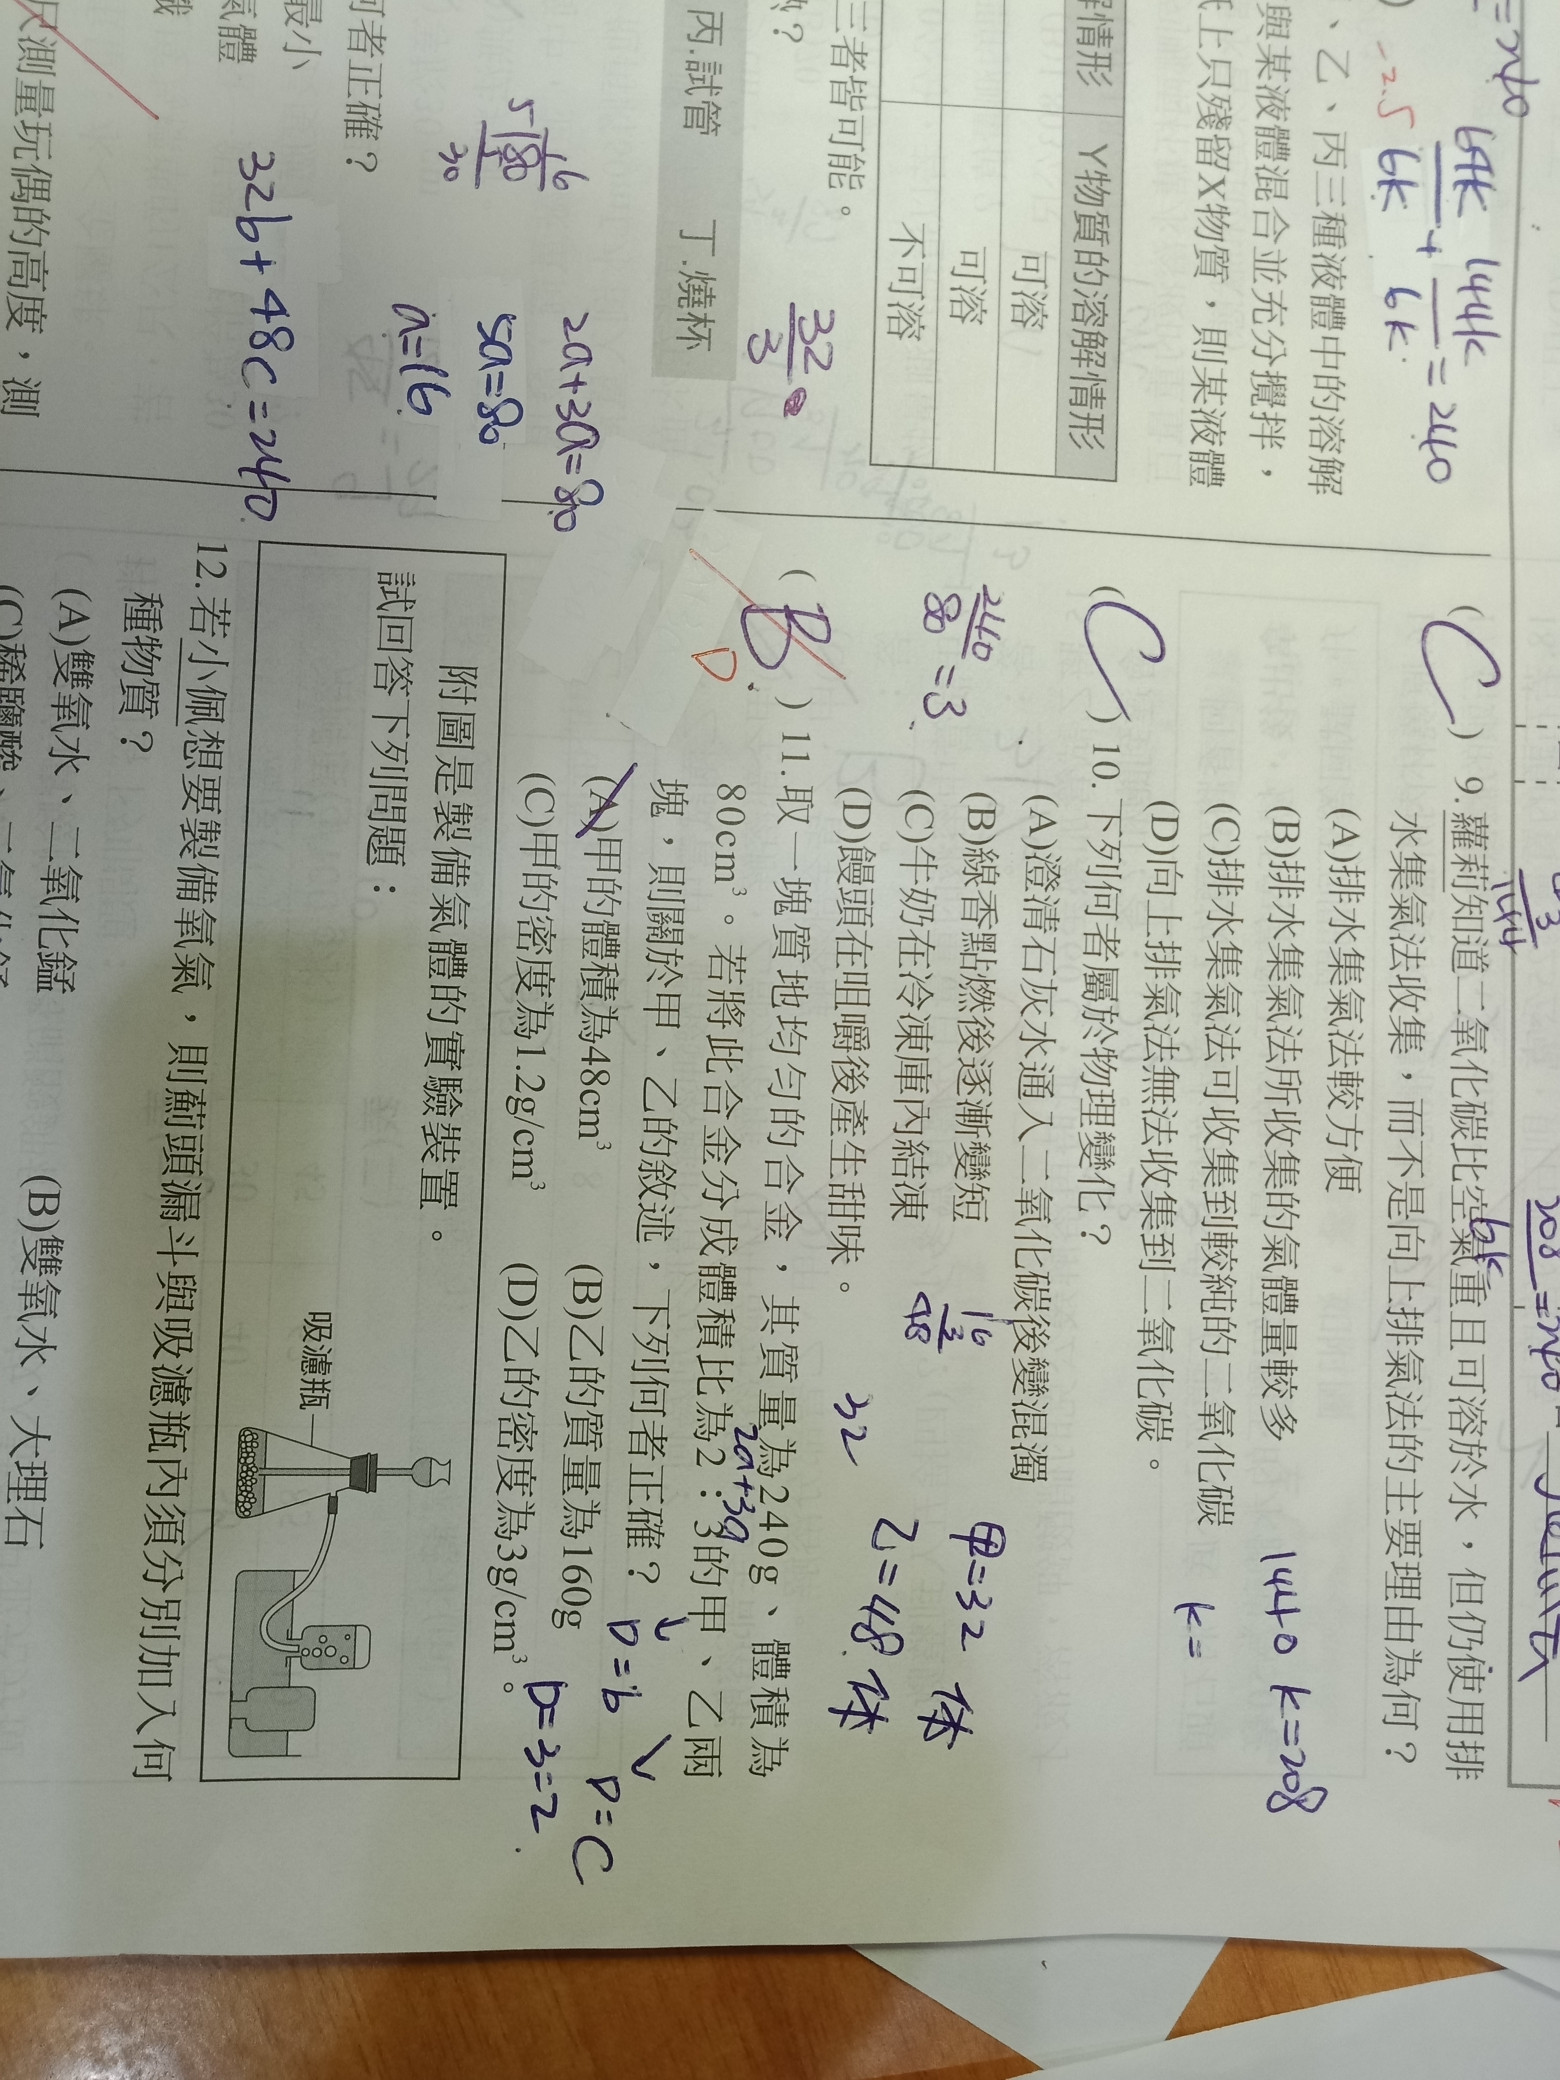 -2.5
64k/6k + 144k/6k = 240
、乙、丙三種液體中的溶解
與某液體混合並充分攪拌，
上只殘留X物質，則某液體
解情形
Y物質的溶解情形
可溶
可溶
不可溶
三者皆可能。
丙.試管 丁.燒杯
32/3
2a+3a=80
5a=80
a=16
何者正確？
最小
氣體
32b+48c=240
尺測量玩偶的高度，測
(C) 9.蘿莉知道二氧化碳比空氣重且可溶於水，但仍使用排
水集氣法收集，而不是向上排氣法的主要理由為何？
(A)排水集氣法較方便
(B)排水集氣法所收集的氣體量較多
(C)排水集氣法可收集到較純的二氧化碳
(D)向上排氣法無法收集到二氧化碳。
1440k=208
k=
(C) 10.下列何者屬於物理變化？
(A)澄清石灰水通入二氧化碳後變混濁
(B)線香點燃後逐漸變短
(C)牛奶在冷凍庫內結凍
(D)饅頭在咀嚼後產生甜味。
240/80=3
甲=32 体
乙=48 体
32
(B) 11.取一塊質地均勻的合金，其質量為240g、體積為
D
80cm³。若將此合金分成體積比為2：3的甲、乙兩
2a+3a
塊，則關於甲、乙的敘述，下列何者正確？
(A)甲的體積為48cm³ (B)乙的質量為160g
(C)甲的密度為1.2g/cm³ (D)乙的密度為3g/cm³。
D=b
D=C
D=3=2
附圖是製備氣體的實驗裝置。
試回答下列問題：
吸濾瓶
12.若小佩想要製備氧氣，則薊頭漏斗與吸濾瓶內須分別加入何
種物質？
(A)雙氧水、二氧化錳 (B)雙氧水、大理石
(C)稀鹽酸、二氧化錳